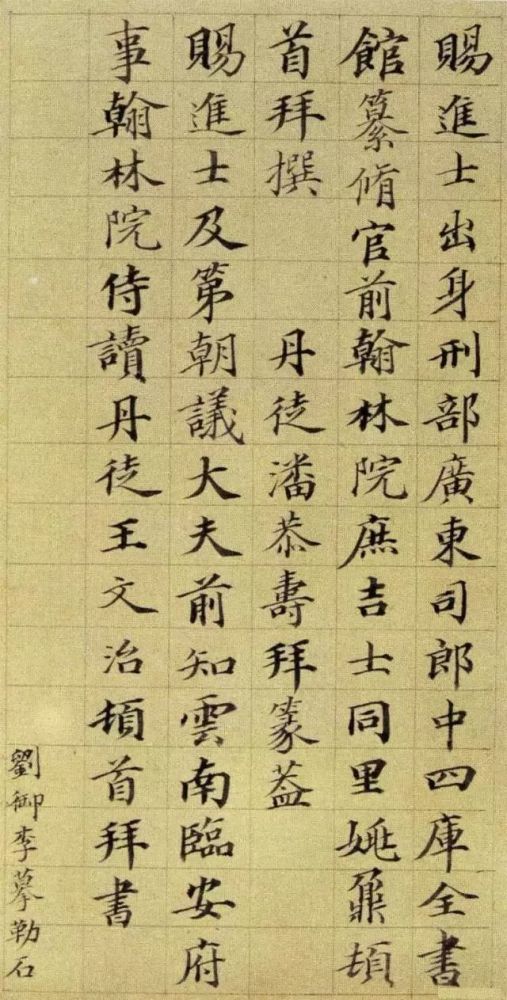 賜進士出身刑部廣東司郎中四庫全書
館纂脩官前翰林院庶吉士同里姚鼐頓
首拜撰 丹徒潘恭壽拜篆蓋
賜進士及第朝議大夫前知雲南臨安府
事翰林院侍讀丹徒王文治頓首拜書
劉御李摹勒石